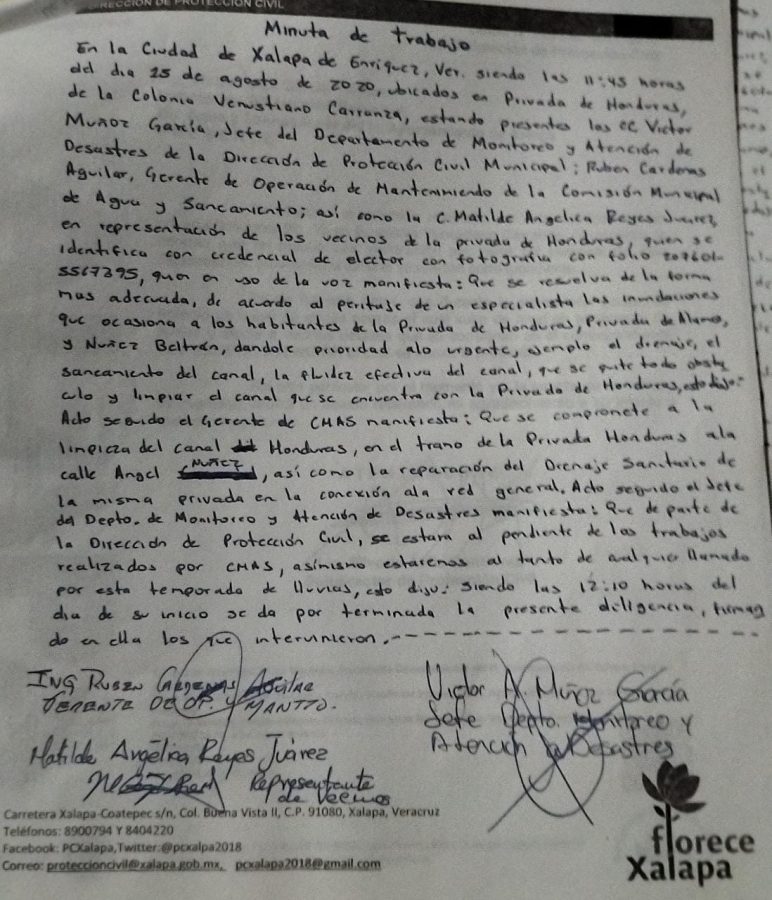 DIRECCIÓN DE PROTECCIÓN CIVIL
Minuta de trabajo
En la Ciudad de Xalapa de Enriquez, Ver. siendo las 11:45 horas
del dia 25 de agosto de 2020, ubicados en Privada de Honduras,
de la Colonia Venustiano Carranza, estando presentes las CC Victor
Muñoz García, Jefe del Departamento de Monitoreo y Atención de
Desastres de la Dirección de Protección Civil Municipal; Ruben Cardenas
Aguilar, Gerente de Operación de Mantenimiento de la Comisión Municipal
de Agua y Saneamiento; así como la C. Matilde Angelica Reyes Juarez
en representación de los vecinos de la privada de Honduras, quien se
identifica con credencial de elector con fotografia con folio 207601-
5567395, quien en uso de la voz manifiesta: Que se resuelva de la forma
mas adecuada, de acuerdo al peritaje de un especialista las inundaciones
que ocasiona a los habitantes de la Privada de Honduras, Privada de Alamo,
y Nuñez Beltrán, dandole prioridad alo urgente, ejemplo el drenaje, el
saneamiento del canal, la fluidez efectiva del canal, que se quite todo obsta
culo y limpiar el canal que se encuentra con la Privada de Honduras, esto dijo:
Acto seguido el Gerente de CMAS manifiesta: Que se compromete a la
limpieza del canal Honduras, en el tramo de la Privada Honduras ala
calle Angel Nuñez, así como la reparación del Drenaje Sanitario de
la misma privada en la conexión ala red general. Acto seguido el Jefe
del Depto. de Monitoreo y Atención de Desastres manifiesta: Que de parte de
la Dirección de Protección Civil, se estara al pendiente de los trabajos
realizados por CMAS, asímismo estaremos al tanto de cualquier llamado
por esta temporada de lluvias, esto dijo: Siendo las 12:10 horas del
dia de su inicio se da por terminada la presente diligencia, firman
do en ella los que intervinieron.
ING RUBEN CARDENAS AGUILAR
GERENTE DE OP. Y MANTTO.
Victor A. Muñoz García
Jefe Depto. Monitoreo y
Atención a Desastres
Matilde Angélica Reyes Juárez
Representante
de Vecinos
Carretera Xalapa-Coatepec s/n, Col. Buena Vista II, C.P. 91080, Xalapa, Veracruz
Teléfonos: 8900794 Y 8404220
Facebook: PCXalapa,Twitter:@pcxalpa2018
Correo: proteccioncivil@xalapa.gob.mx, pcxalapa2018@gmail.com
florece
Xalapa